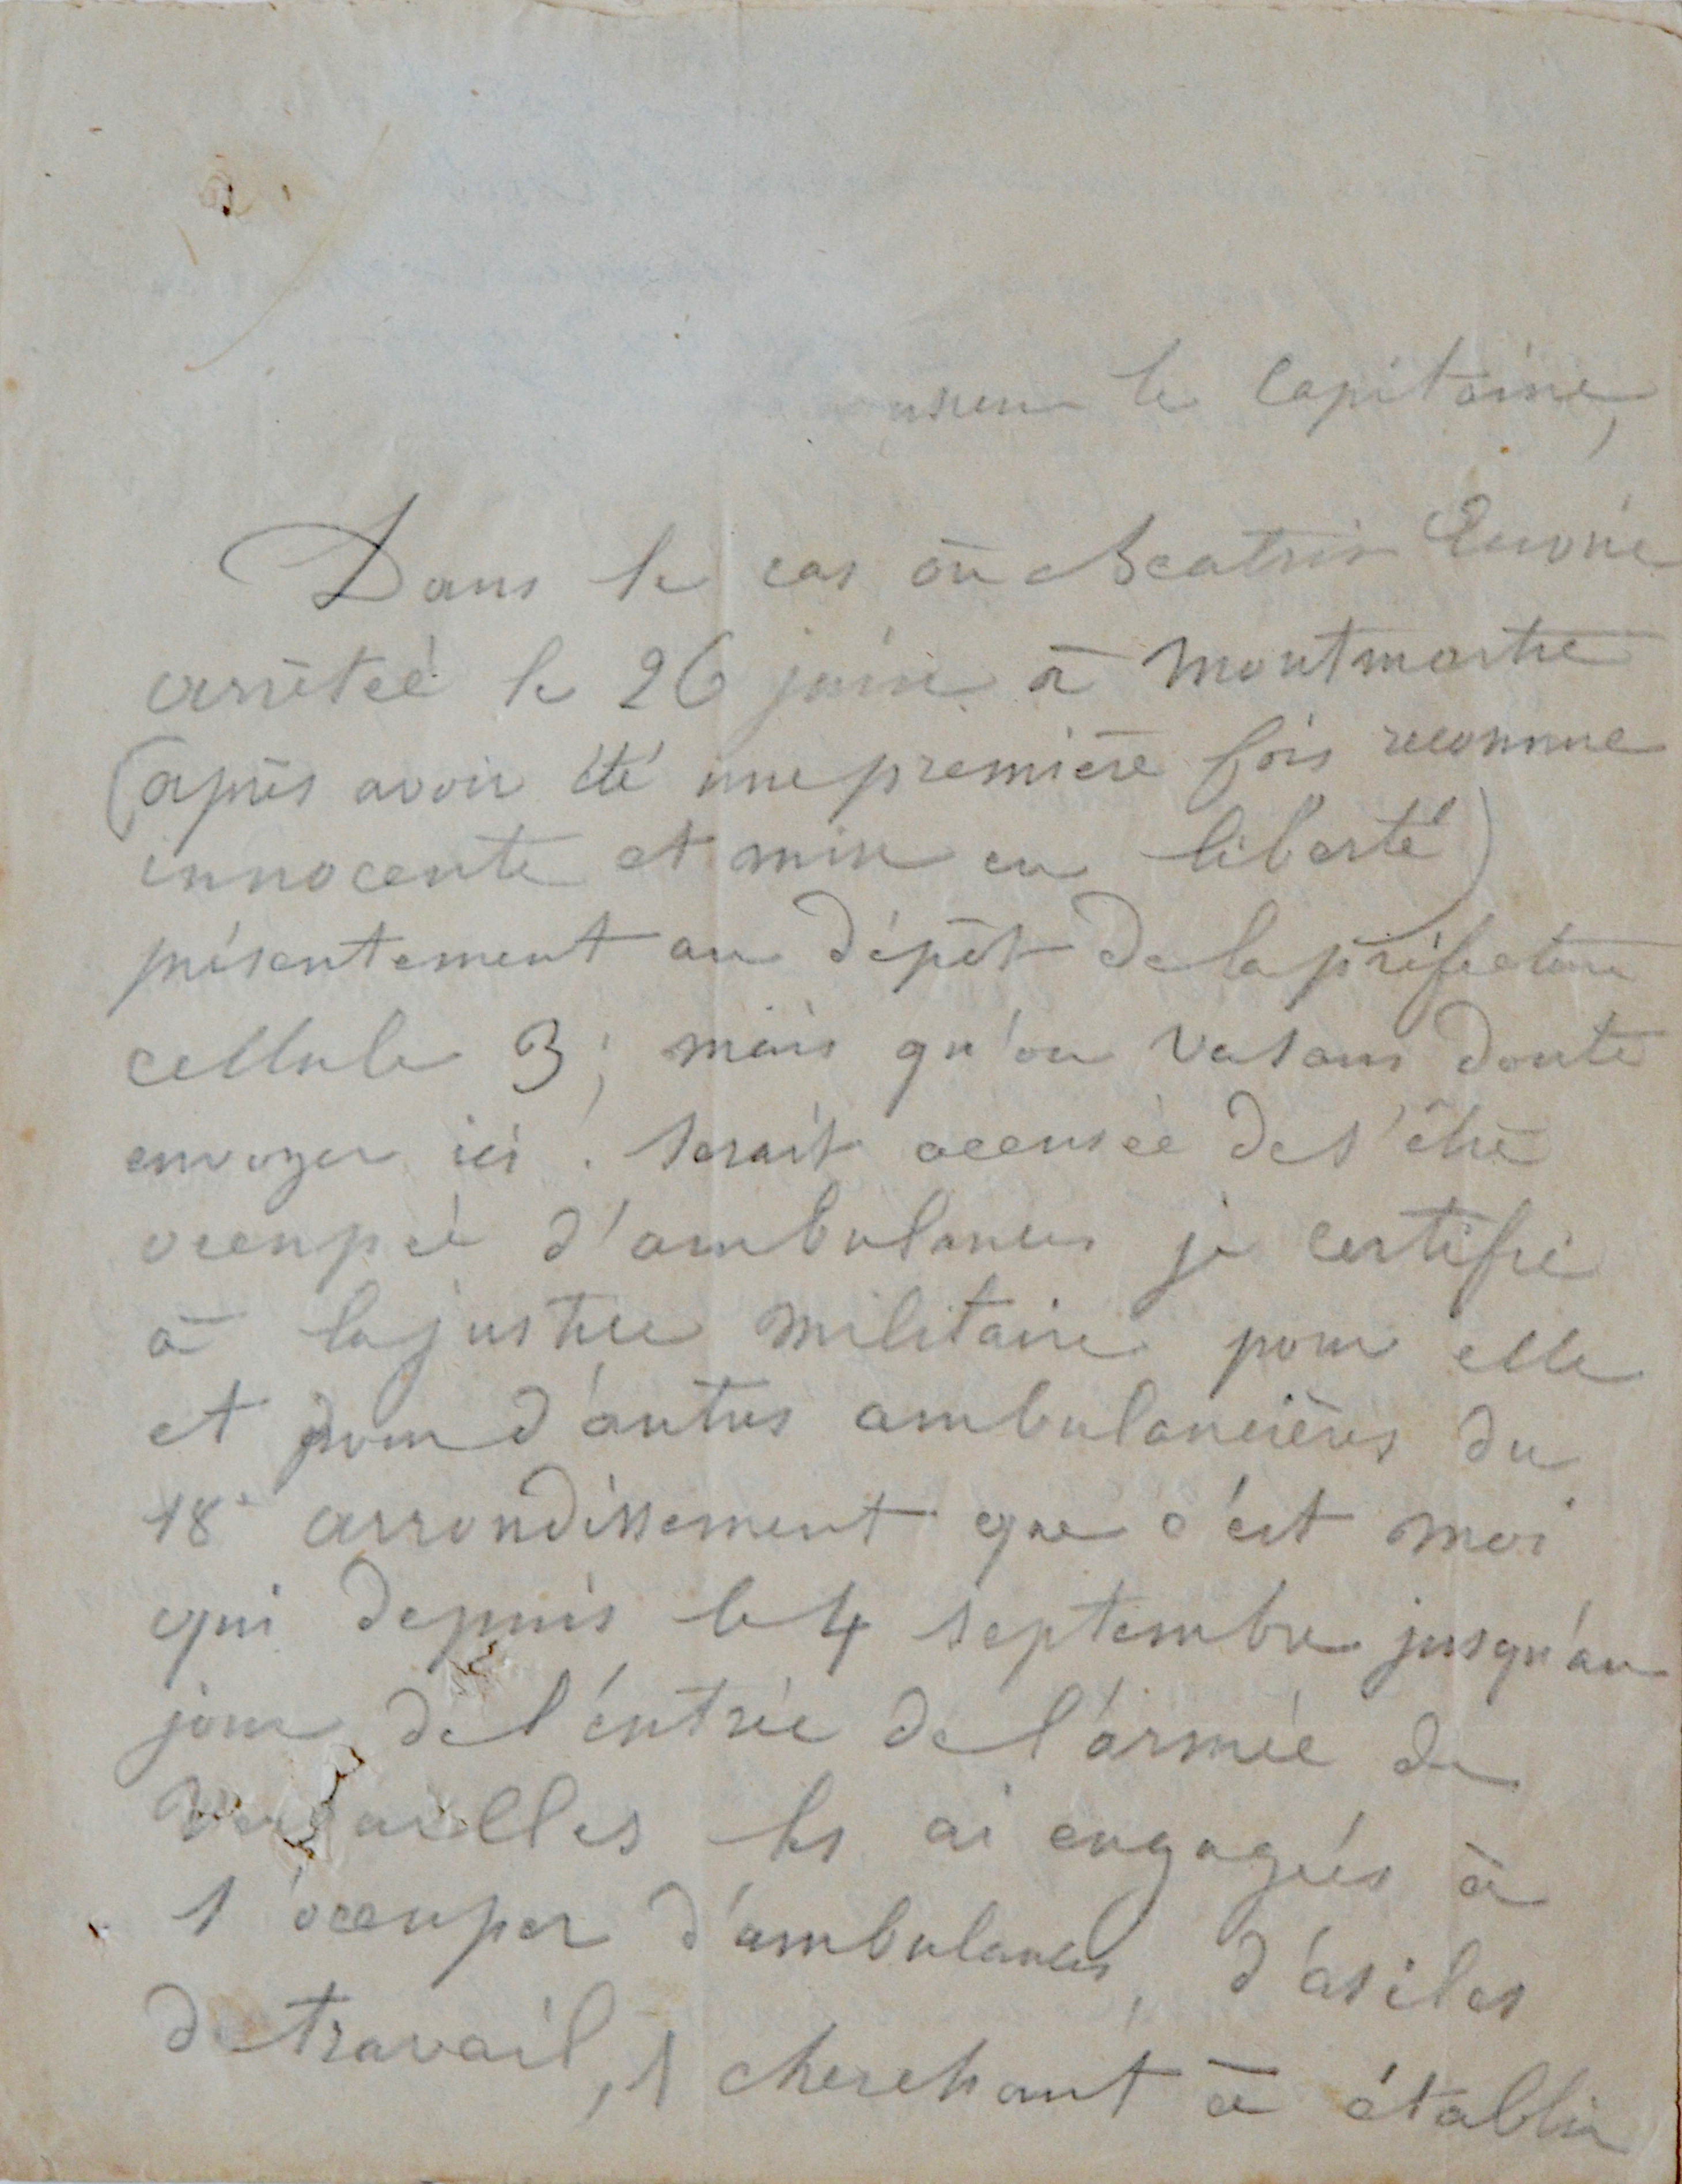 le Capitaine,
Dans le cas où Beatrix
arrêtée le 26 juin à Montmartre
(après avoir été une première fois reconnue
innocente et mise en liberté)
présentement au dépôt de la préfecture
cellule 3 ; mais qu'on va sans doute
envoyer ici. serait accusée de s'être
occupée d'ambulances je certifie
à la justice militaire pour elle
et pour d'autres ambulancières du
18e arrondissement que c'est moi
qui depuis le 4 septembre jusqu'au
jour de l'entrée de l'armée de
Versailles les ai engagées à
s'occuper d'ambulances, d'asiles
de travail, cherchant à établir